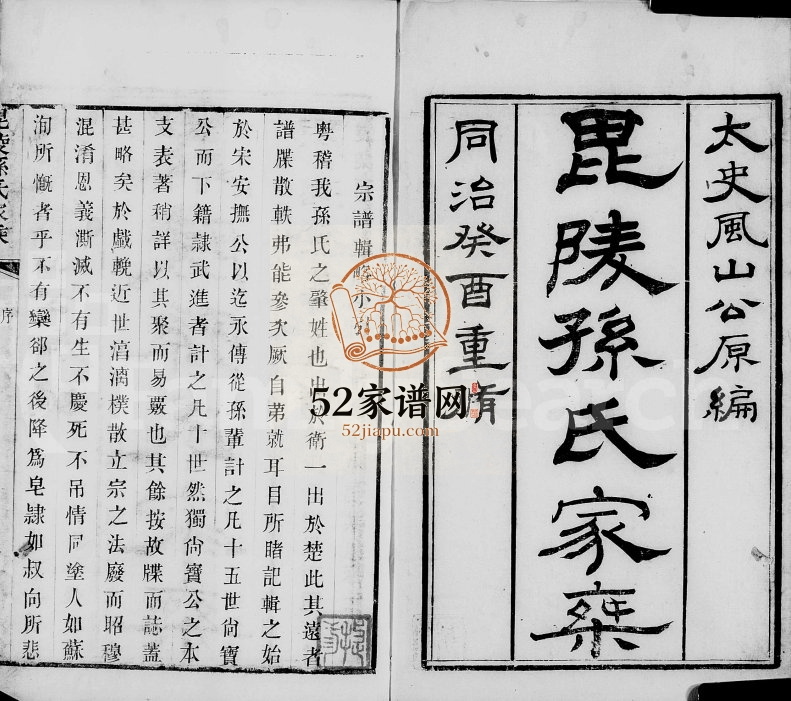 太史風山公原編
毘陵孫氏家椉
同治癸酉重脩
宗譜輯略小
粵稽我孫氏之肇姓也出於衛一出於楚此其遠者
譜牒散軼弗能參次厥自弟就耳目所睹記輯之始
於宋安撫公以迄永傳從孫輩計之凡十五世尙寶
公而下籍隸武進者計之凡十世然獨尙寶公之本
支表著稍詳以其聚而易覈也其餘按故牒而誌蓋
甚略矣於戲輓近世湻漓樸散立宗之法廢而昭穆
混淆恩義澌滅不有生不慶死不吊情同塗人如蘇
洵所慨者乎不有欒郤之後降爲皂隷如叔向所悲
毘陵孫氏家椉
序
52家谱网
52jiapu.com